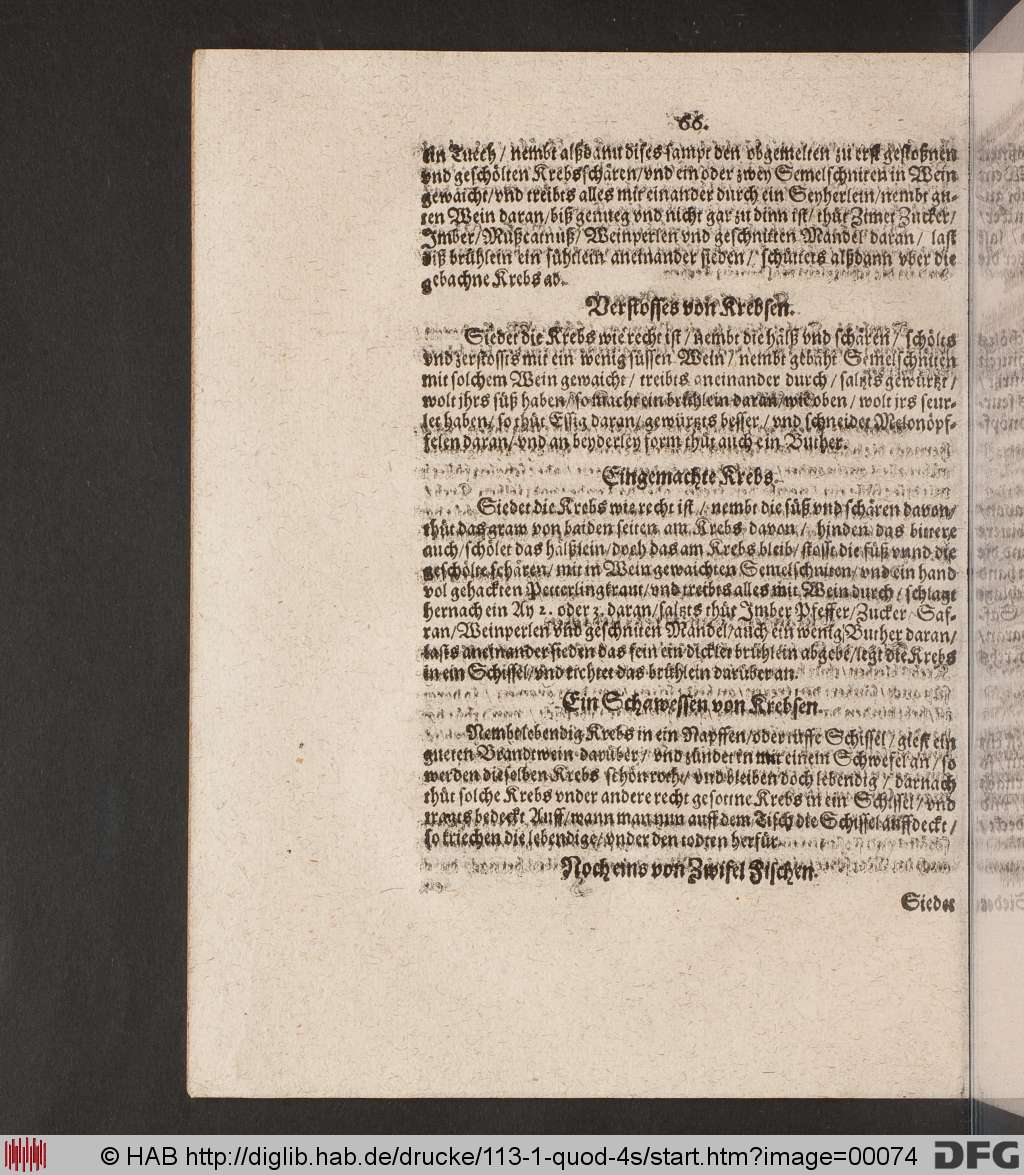 66.
ein Tuech / nembt alßdann dises sampt den obgemelten zu erst gestoßnen
vnd geschölten Krebsschären/vnd ein oder zwey Semelschniten in Wein
gewaicht/vnd treibts alles mit einander durch ein Seyherlein/nembt gu-
ten Wein daran/biß genueg vnd nicht gar zu dinn ist/thüt Zimet Zucker/
Imber/Mußcatnuß/Weinperlen vnd geschnitten Mandel daran/ last
diß brühlein ein südtlein aneinander sieden/ schüttets alßdann vber die
gebachne Krebs ab.
Verstosses von Krebsen.
Siedet die Krebs wie recht ist / nembt die hälß vnd schären / schölts
vnd zerstossts mit ein wenig süssen Wein / nembt gebäht Semelschniten
mit solchem Wein gewaicht / treibts aneinander durch / saltzts gewürtzt /
wolt jhrs süß haben/so macht ein brühlein daran/wie oben / wolt jrs seur-
let haben/ so thüt Essig daran/ gewürtzts besser / vnd schneidet Melonöpf-
felen daran/vnd an beyderley form thüt auch ein Buther.
Eingemachte Krebs.
Siedet die Krebs wie recht ist / nembt die füß vnd schären davon/
thüt das graw von baiden seiten am Krebs davon / hinden das bittere
auch/schölet das hälßlein/doch das am Krebs bleib/ stosst die füß vnnd die
geschölte schären/mit in Wein gewaichten Semelschniten/vnd ein hand
vol gehackten Petterlingkraut/vnd treibts alles mit Wein durch / schlagt
hernach ein Ay 2. oder 3. daran/saltzts thüt Imber Pfeffer/Zucker Saf-
ran/Weinperlen vnd geschniten Mandel/auch ein wenig Buther daran/
lasts aneinander sieden das fein ein dicklet brühlein abgebe/legt die Krebs
in ein Schissel/vnd richtet das brühlein darüber an.
Ein Schawessen von Krebsen.
Nembt lebendig Krebs in ein Napffen/oder tüffe Schissel / giest ein
gueten Brandtwein darüber / vnd zündet in mit einem Schwefel an / so
werden dieselben Krebs schön roth / vnd bleiben doch lebendig / darnach
thüt solche Krebs vnder andere recht gesottne Krebs in ein Schissel / vnd
tragts bedeckt Auff/wann man nun auff dem Tisch die Schissel auffdeckt /
so kriechen die lebendige/vnder den todten herfür.
Noch eins von Zwifel Fischen.
Siedet
© HAB http://diglib.hab.de/drucke/113-1-quod-4s/start.htm?image=00074
DFG